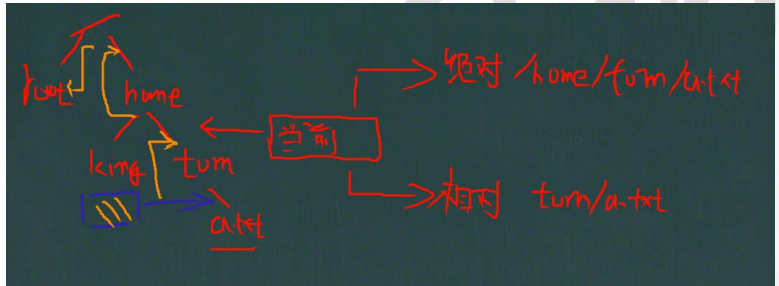 root
home
king
tom
a.txt
当前
绝对 /home/tom/a.txt
相对 tom/a.txt